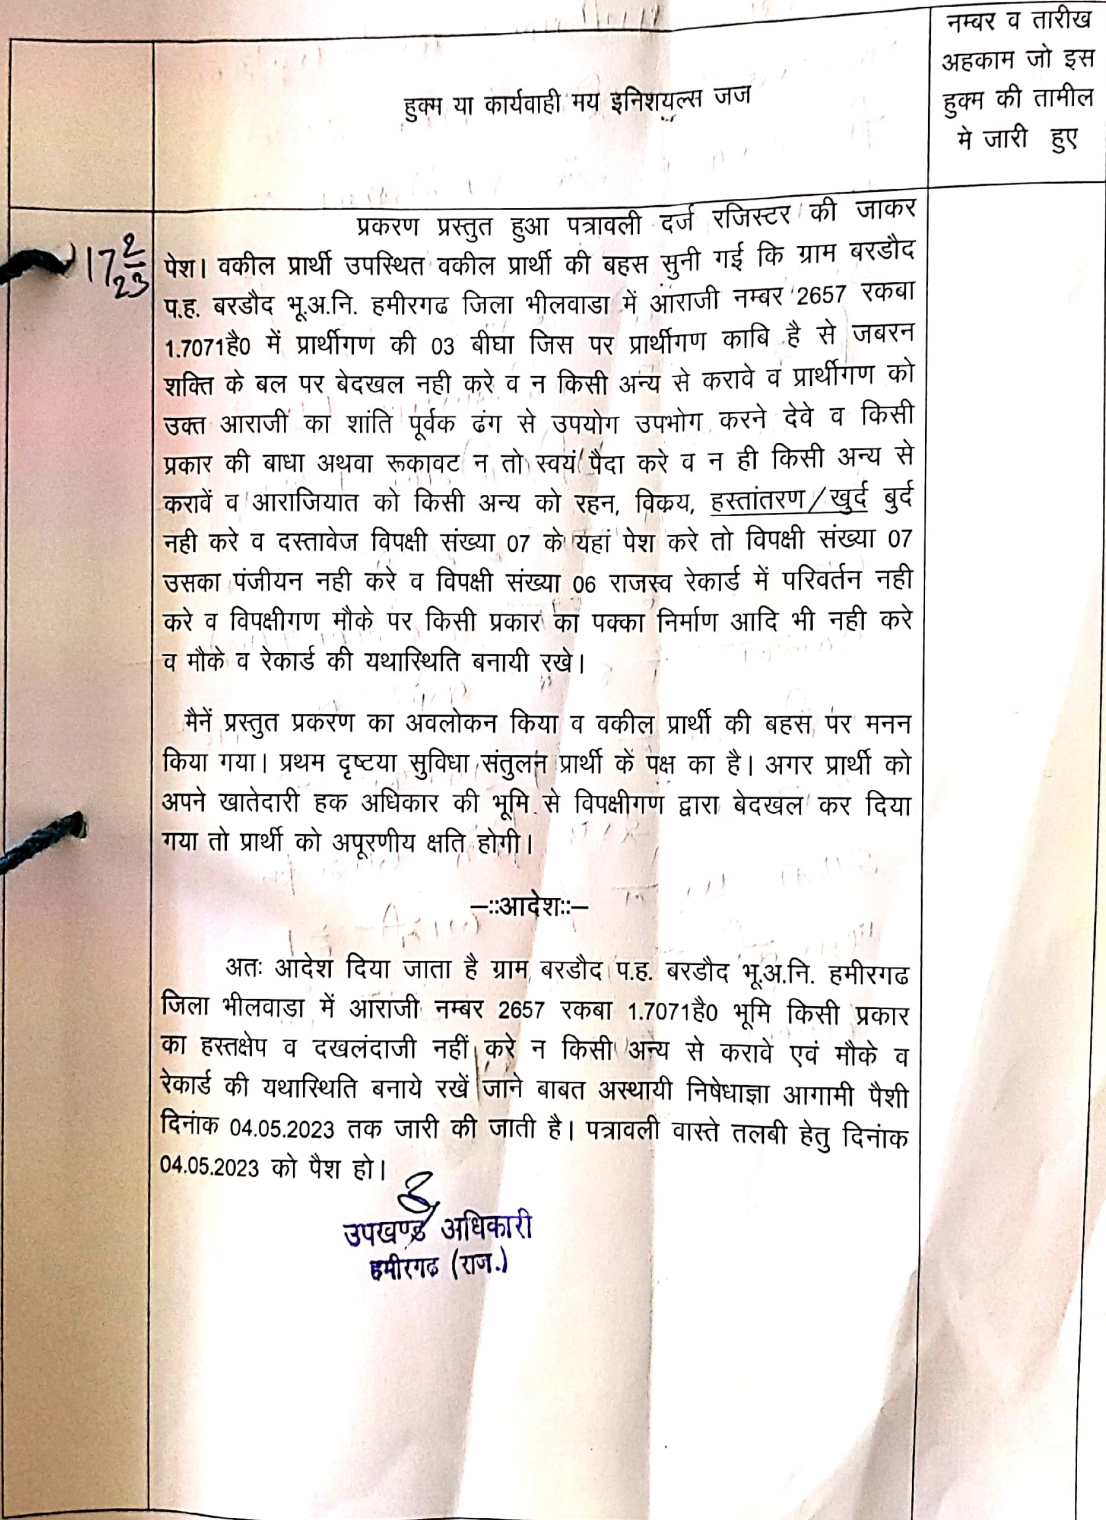 नम्बर व तारीख
अहकाम जो इस
हुक्म की तामील
मे जारी हुए
हुक्म या कार्यवाही मय इनिशयल्स जज
17 2/23
प्रकरण प्रस्तुत हुआ पत्रावली दर्ज रजिस्टर की जाकर
पेश। वकील प्रार्थी उपस्थित वकील प्रार्थी की बहस सुनी गई कि ग्राम बरडौद
प.ह. बरडौद भू.अ.नि. हमीरगढ जिला भीलवाडा में आराजी नम्बर 2657 रकबा
1.7071है0 में प्रार्थीगण की 03 बीघा जिस पर प्रार्थीगण काबि है से जबरन
शक्ति के बल पर बेदखल नही करे व न किसी अन्य से करावे व प्रार्थीगण को
उक्त आराजी का शांति पूर्वक ढंग से उपयोग उपभोग करने देवे व किसी
प्रकार की बाधा अथवा रूकावट न तो स्वयं पैदा करे व न ही किसी अन्य से
करावें व आराजियात को किसी अन्य को रहन, विक्रय, हस्तांतरण/खुर्द बुर्द
नही करे व दस्तावेज विपक्षी संख्या 07 के यहां पेश करे तो विपक्षी संख्या 07
उसका पंजीयन नही करे व विपक्षी संख्या 06 राजस्व रेकार्ड में परिवर्तन नही
करे व विपक्षीगण मौके पर किसी प्रकार का पक्का निर्माण आदि भी नही करे
व मौके व रेकार्ड की यथास्थिति बनायी रखे।
मैनें प्रस्तुत प्रकरण का अवलोकन किया व वकील प्रार्थी की बहस पर मनन
किया गया। प्रथम दृष्टया सुविधा संतुलन प्रार्थी के पक्ष का है। अगर प्रार्थी को
अपने खातेदारी हक अधिकार की भूमि से विपक्षीगण द्वारा बेदखल कर दिया
गया तो प्रार्थी को अपूरणीय क्षति होगी।
—::आदेश::—
अतः आदेश दिया जाता है ग्राम बरडौद प.ह. बरडौद भू.अ.नि. हमीरगढ
जिला भीलवाडा में आराजी नम्बर 2657 रकबा 1.7071है0 भूमि किसी प्रकार
का हस्तक्षेप व दखलंदाजी नहीं करे न किसी अन्य से करावे एवं मौके व
रेकार्ड की यथास्थिति बनाये रखें जाने बाबत अस्थायी निषेधाज्ञा आगामी पैशी
दिनांक 04.05.2023 तक जारी की जाती है। पत्रावली वास्ते तलबी हेतु दिनांक
04.05.2023 को पैश हो।
उपखण्ड अधिकारी
हमीरगढ (राज.)